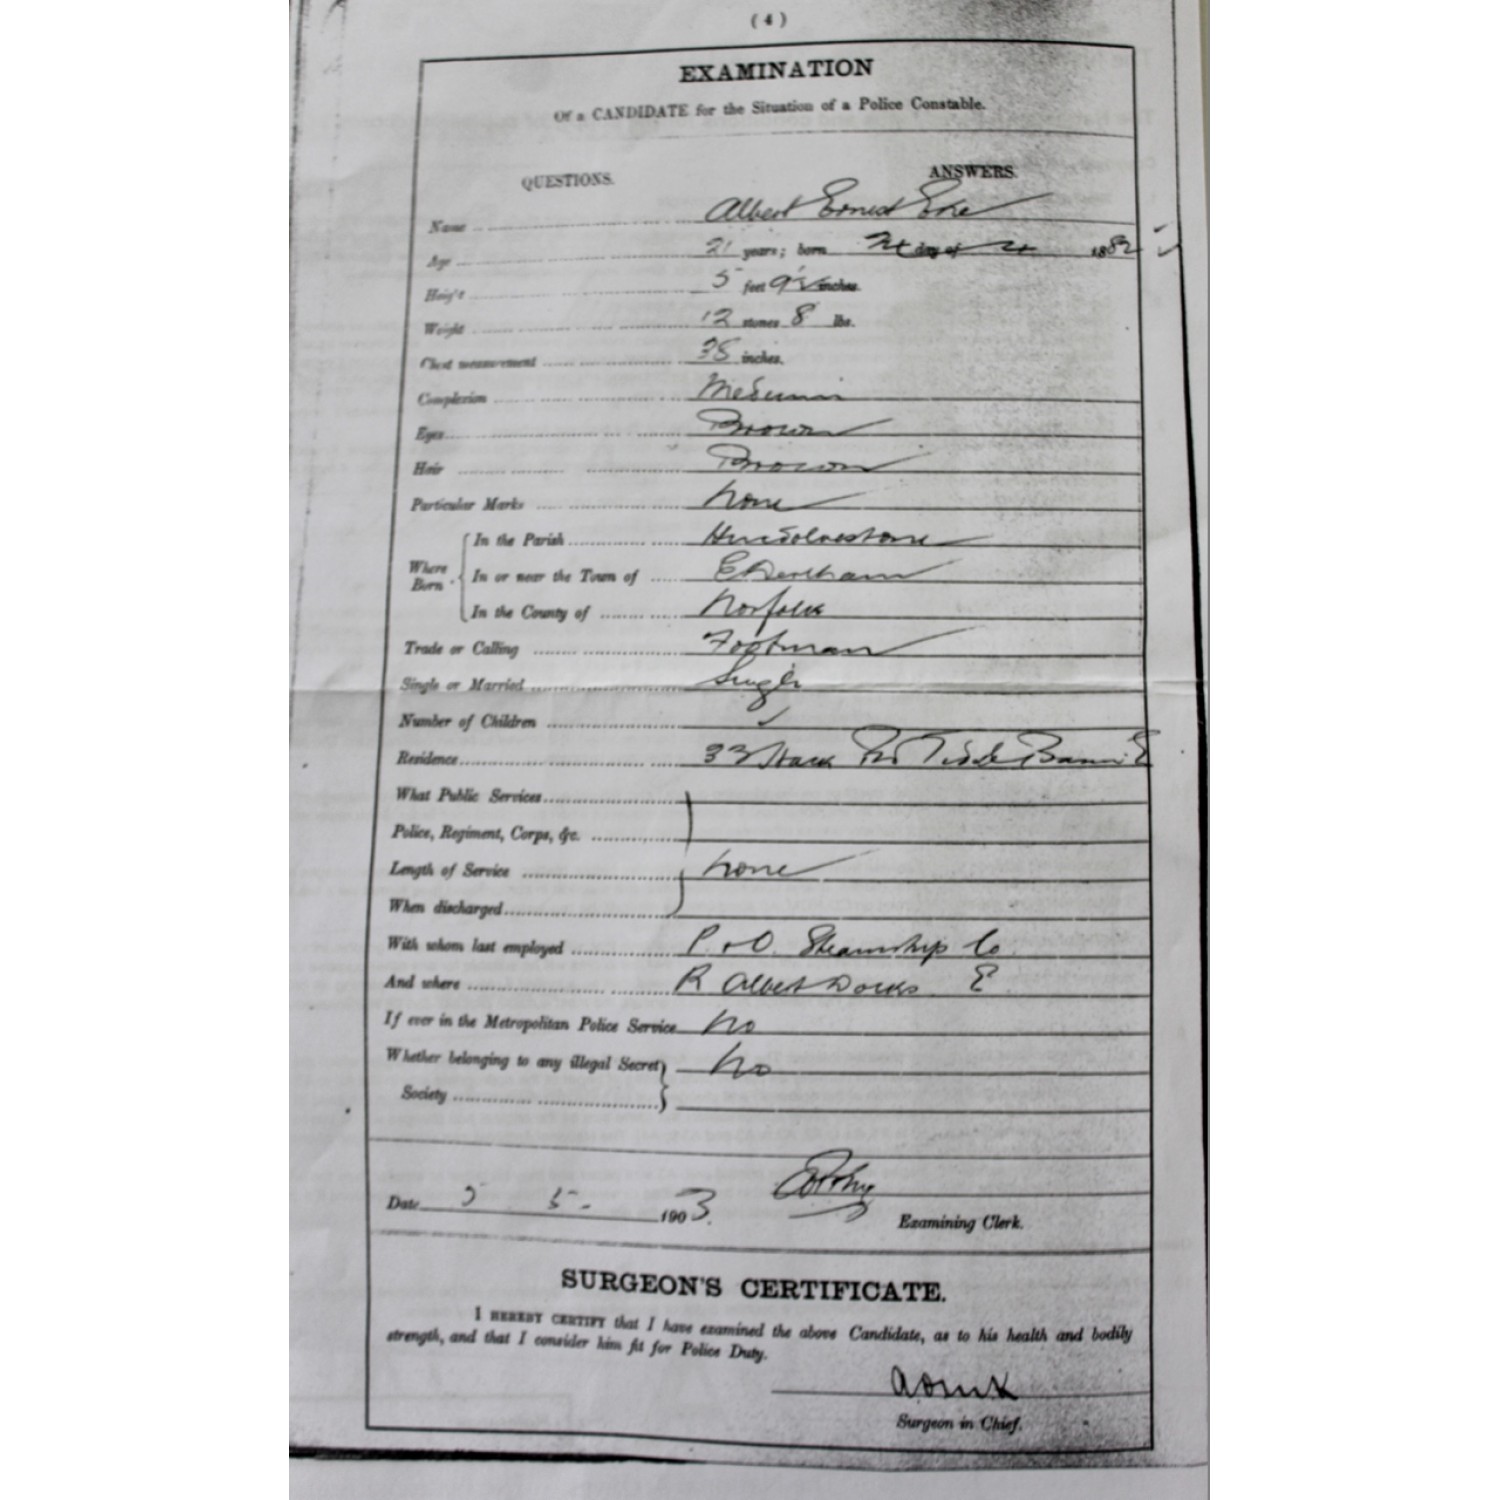 ( 4 )
EXAMINATION
Of a CANDIDATE for the Situation of a Police Constable.
QUESTIONS. ANSWERS.
Name Albert Ernest Eke
Age 21 years; born day of 1882
Height 5 feet 9½ inches.
Weight 12 stones 8 lbs.
Chest measurement 38 inches.
Complexion Medium
Eyes Brown
Hair Brown
Particular Marks None
Where Born
In the Parish Hindolvestone
In or near the Town of E Dereham
In the County of Norfolk
Trade or Calling Footman
Single or Married Single
Number of Children ✓
Residence 33 Rd Tidal Basin E
What Public Services
Police, Regiment, Corps, &c.
Length of Service None
When discharged
With whom last employed P. & O. Steamship Co
And where R Albert Docks E
If ever in the Metropolitan Police Service No
Whether belonging to any illegal Secret No
Society
Date 5 5 - 1903.
Examining Clerk.
SURGEON'S CERTIFICATE.
I HEREBY CERTIFY that I have examined the above Candidate, as to his health and bodily
strength, and that I consider him fit for Police Duty.
Surgeon in Chief.